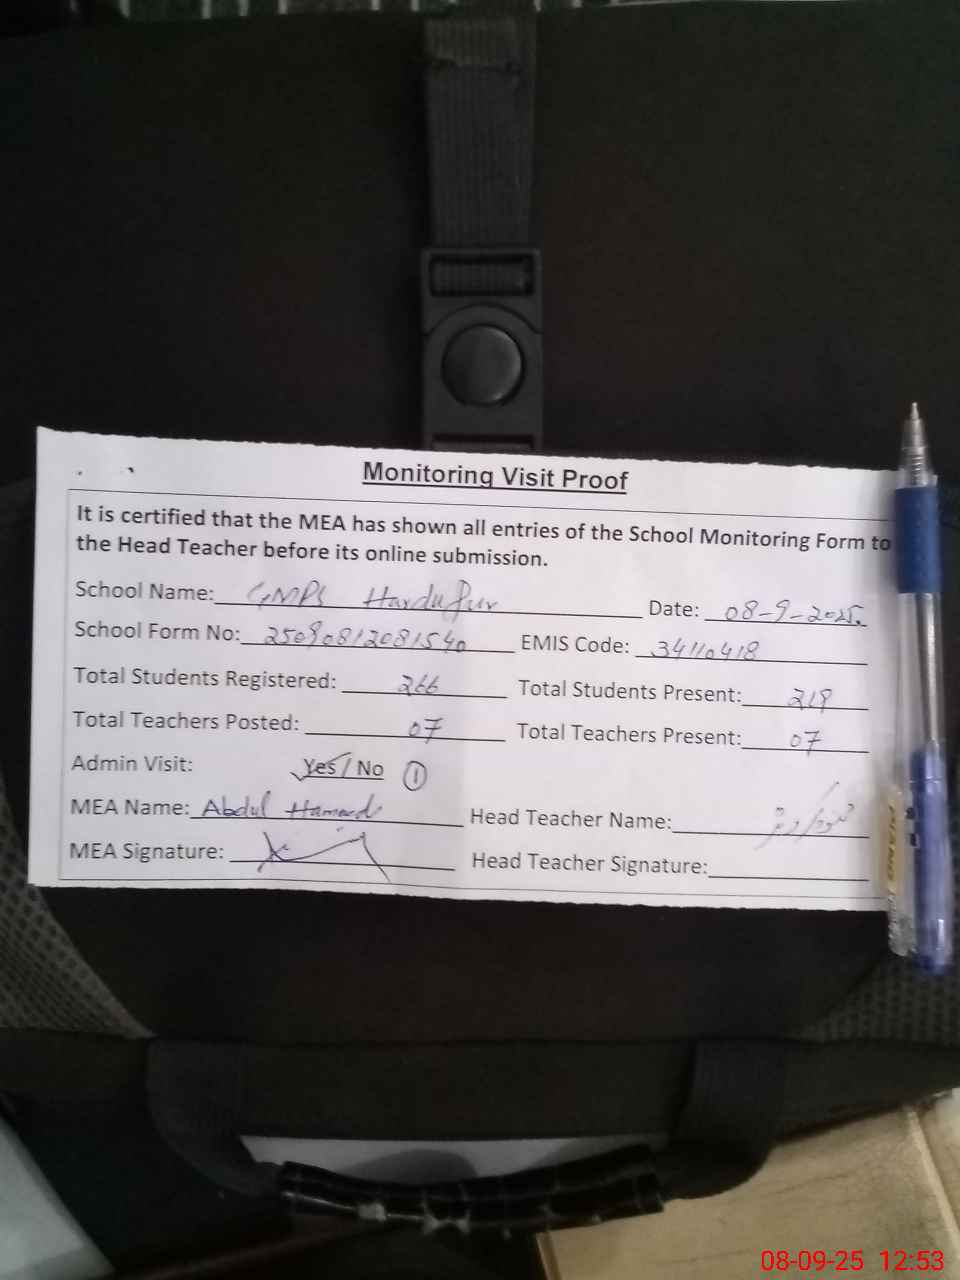 Monitoring Visit Proof
It is certified that the MEA has shown all entries of the School Monitoring Form to
the Head Teacher before its online submission.
School Name: GMPS Hardupur Date: 08-9-2025.
School Form No: 25090812081540 EMIS Code: 34110418
Total Students Registered: 266 Total Students Present: 219
Total Teachers Posted: 07 Total Teachers Present: 07
Admin Visit: Yes / No 1
MEA Name: Abdul Hameed Head Teacher Name:
MEA Signature: Head Teacher Signature:
PIANO
08-09-25 12:53